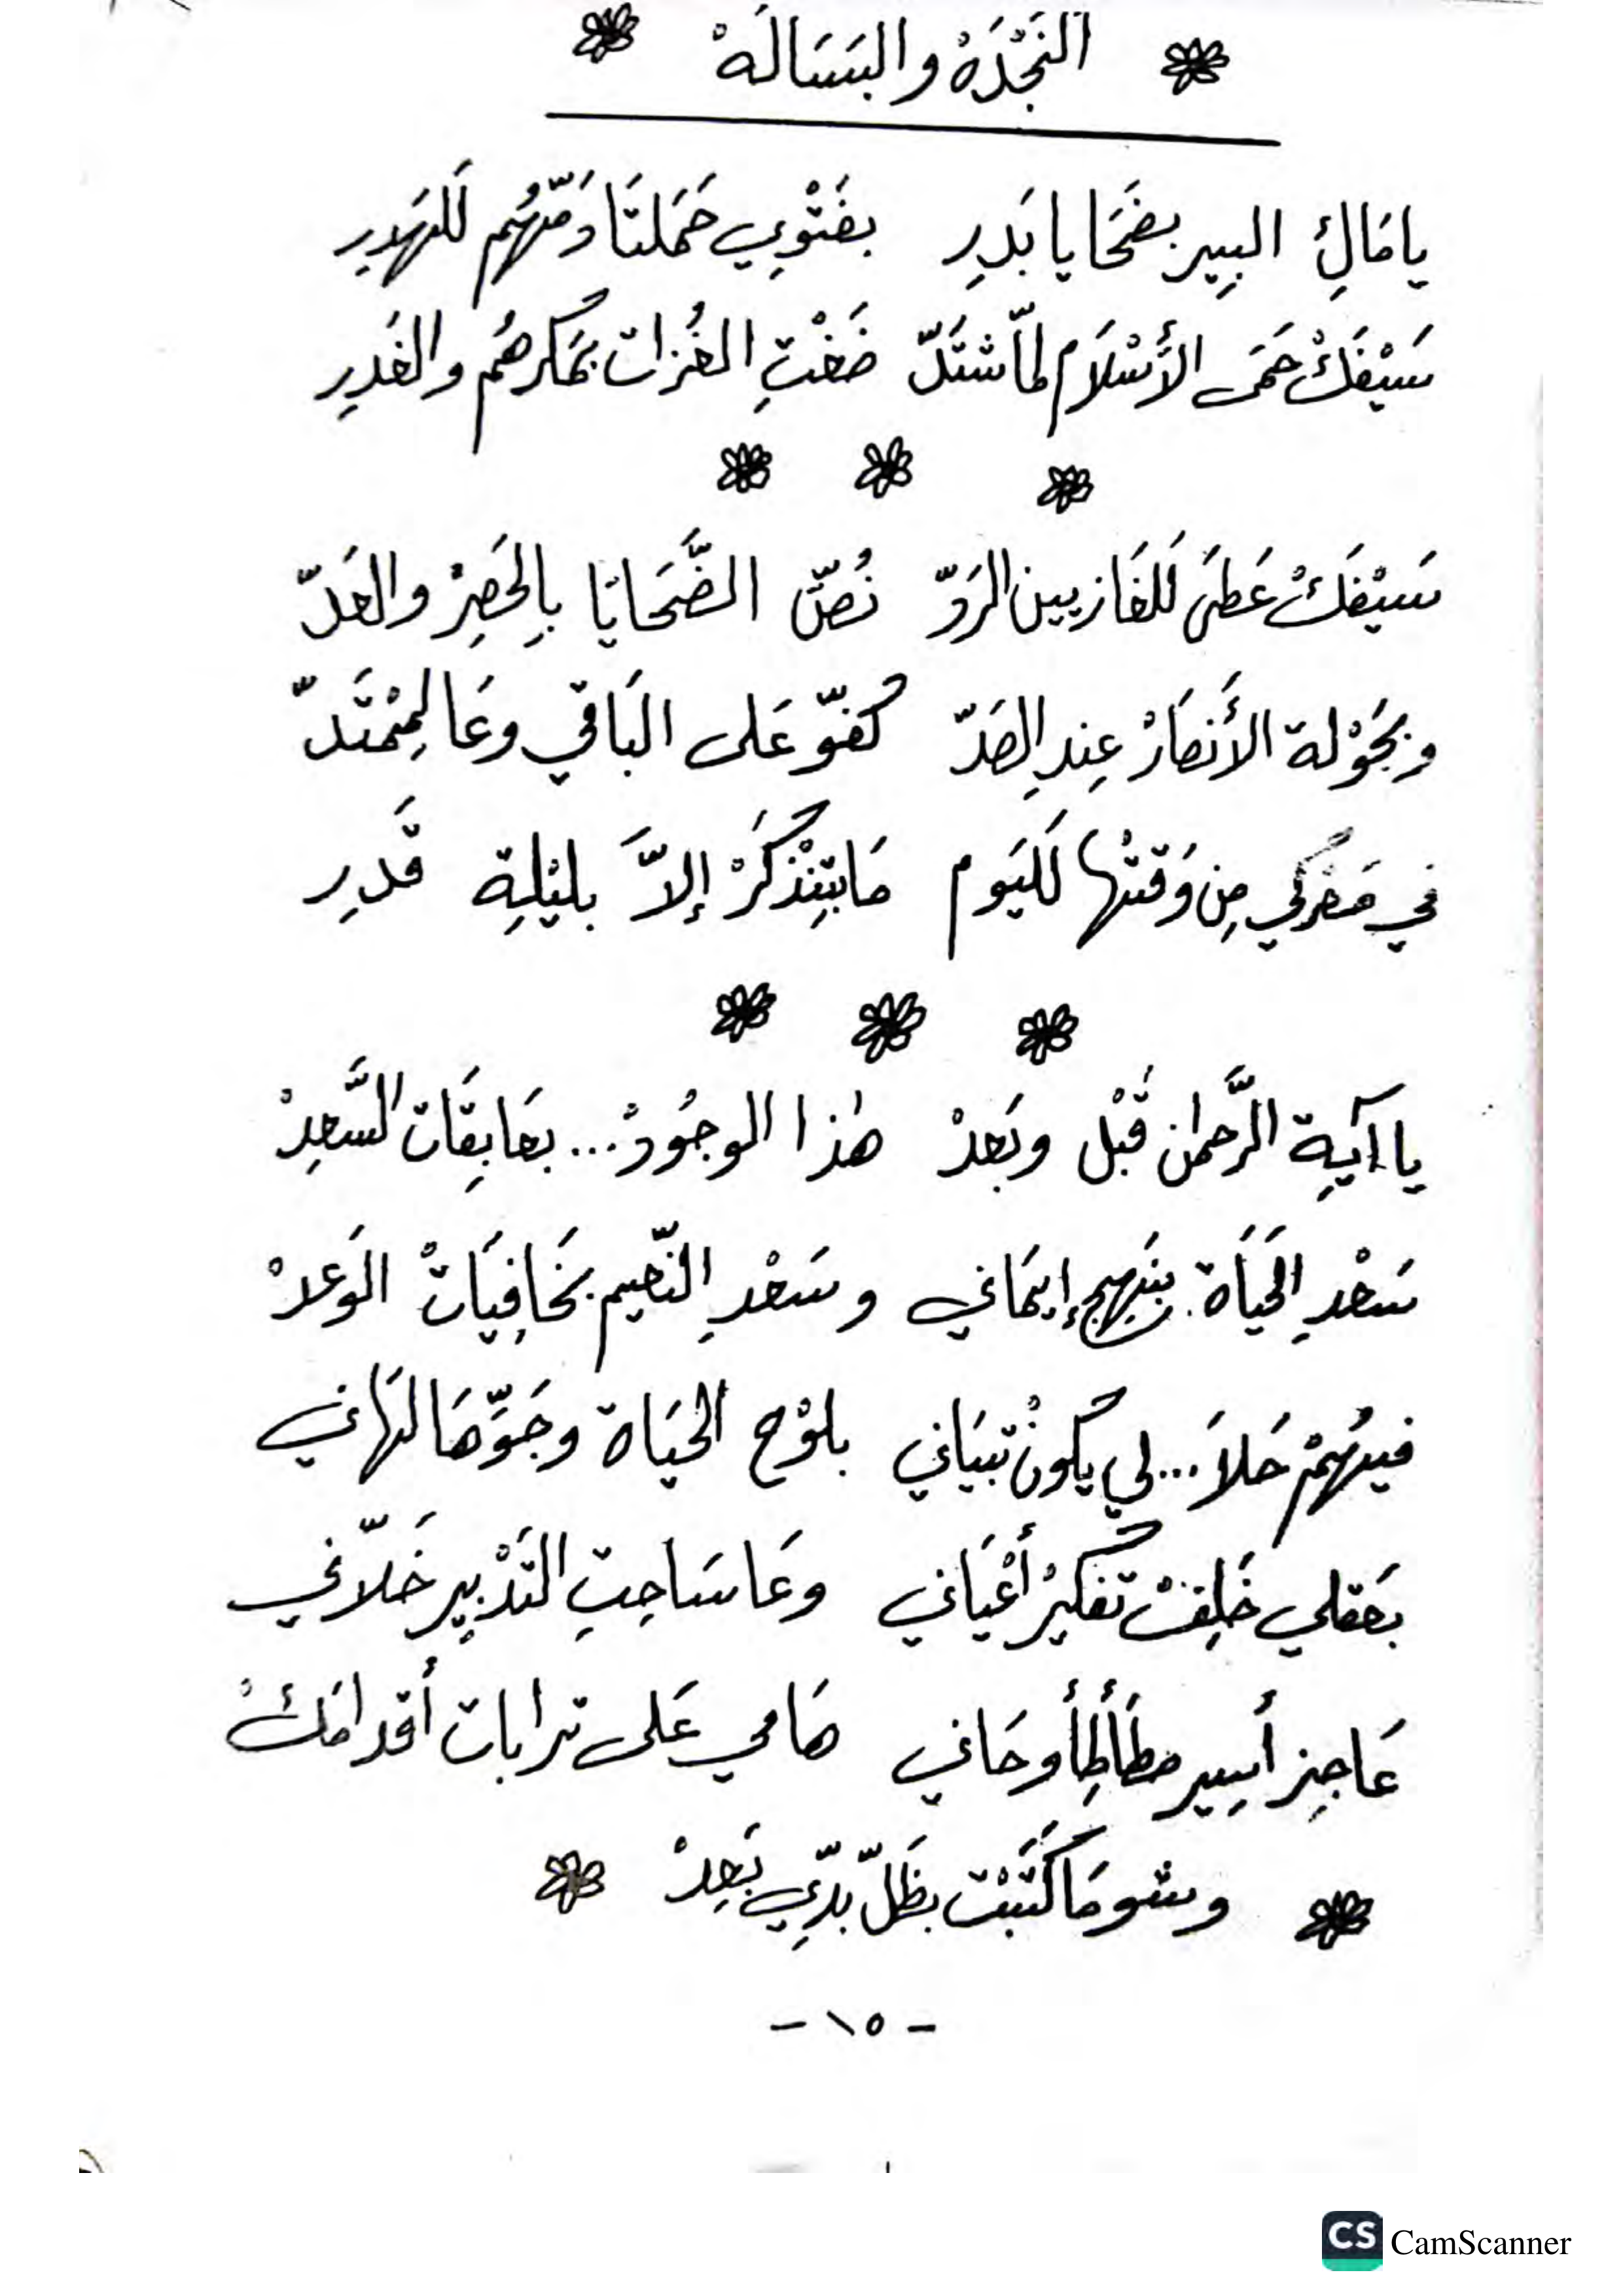 النَجْدَهْ والبَسَالَهْ
يا مَالِئ البِير بضَحَايا بَدرِ بفَتْوِي حَمَلتَا دَمّهُم لَلهَدرِ
سَيْفَكْ حَمَى الأَسْلاَم لمّا شتَدّ ضَغْتِ الغُزات بمَكرهُم والغَدرِ
سَيْفَكْ عَطىَ لَلغَازيين الرَدّ نُصّ الضَّحَايَا بِالحَصِرْ والعَدّ
وبجَوْلة الأَنصَارْ عِندِ الصَدّ كفّو عَلى البَاقي وعَا لمِمْتَدّ
في مَعْركي مِن وَقتْها لَليَوم مَا بتِنْذكَرْ إلاَّ بليْلِة قَدرِ
يا آيِة الرَّحمٰن قَبْل وبَعدْ هٰذا الوجُودْ... بعَابِقَات السَّعِدْ
سَعْدِ الحَيَاة بنَهج إيمَاني وسَعْدِ النّعيم بخَافِيَاتْ الوَعدْ
فيهُمْ حَلاَ... لي يكُونْ تبيَاني بلَوْح الحيَاة وجَوِّهَا الهَاني
بعَقلي خَلِفتْ تفكيرْ أَعْيَاني وعَا سَاحِتِ التَدْبِير خَلاّني
عَاجِز أسِير مطَأطِأ وحَاني هَامي عَلى ترابات أقدامَكْ
وشو مَا كَتَبْت بظَلّ بدّي بَعِدْ
- ١٥ -
CS CamScanner